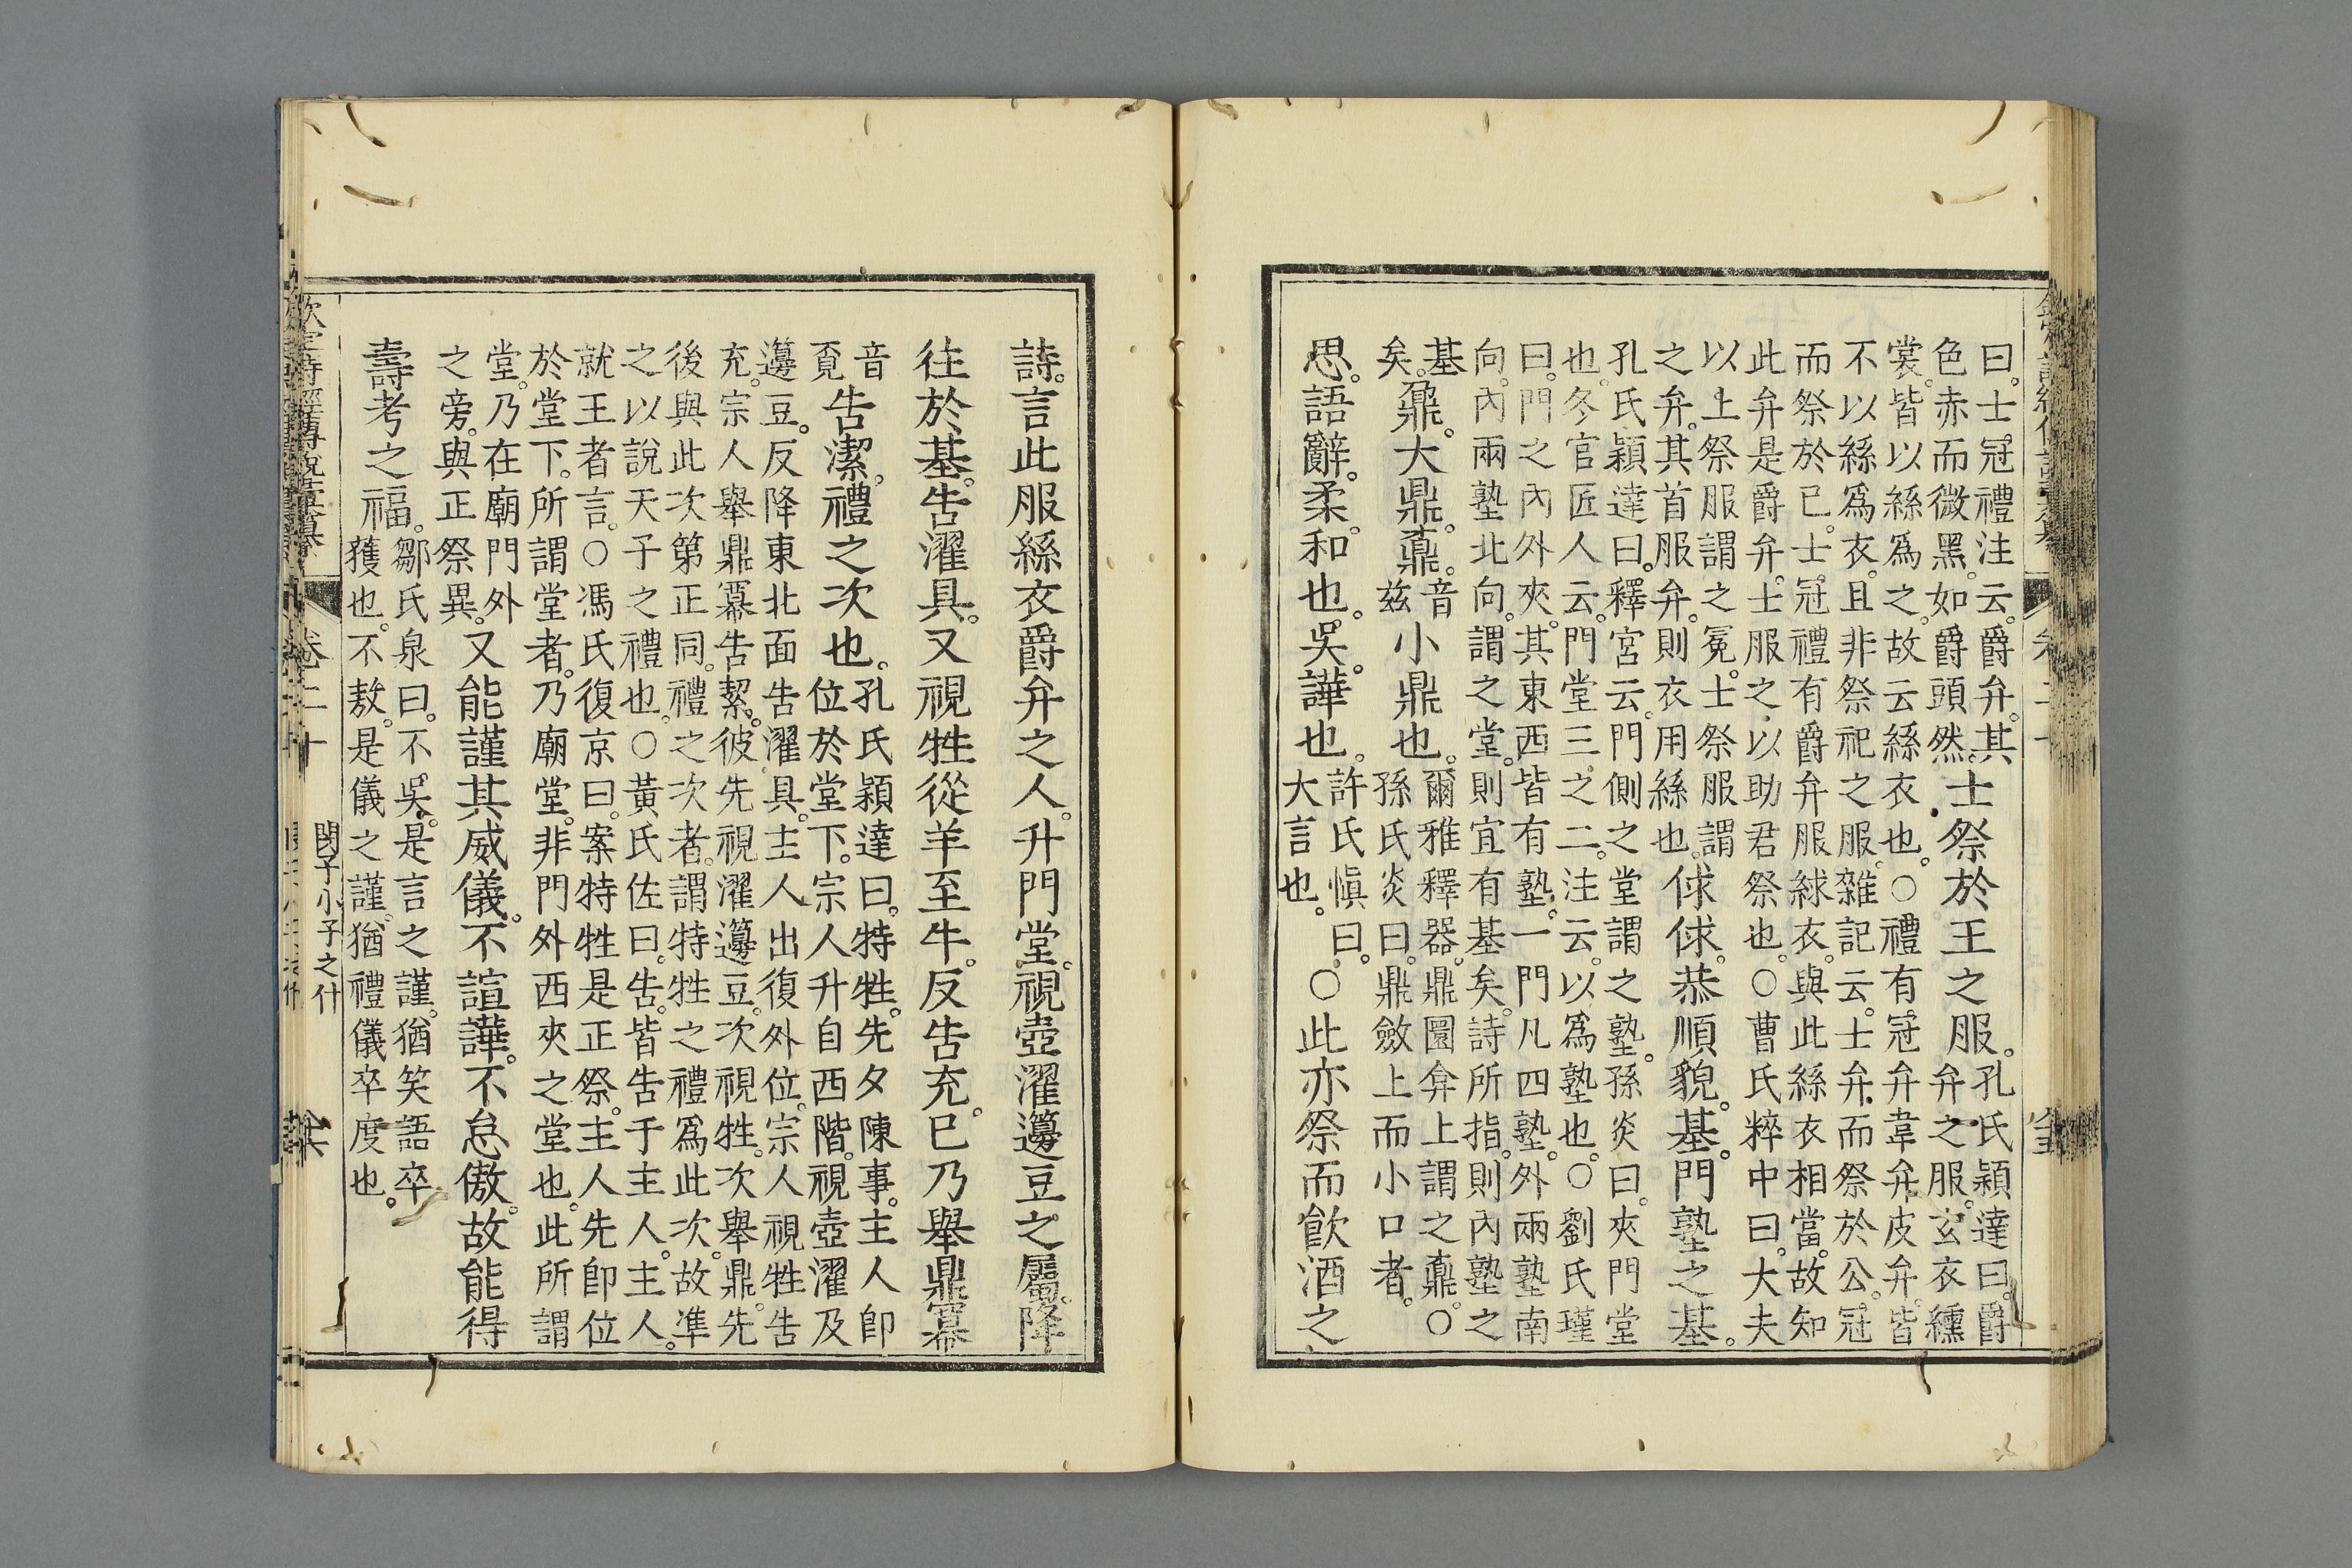 曰。士冠禮注云。爵弁。其
色赤而微黑。如爵頭然。
士祭於王之服。
孔氏穎達曰。爵
弁之服。玄衣纁
裳。皆以絲爲之。故云絲衣也。○禮有冠弁韋弁皮弁。皆
不以絲爲衣。且非祭祀之服。雜記云。士弁而祭於公。冠
而祭於已。士冠禮有爵弁服絿衣。與此絲衣相當。故知
此弁是爵弁。士服之。以助君祭也。○曹氏粹中曰。大夫
以上祭服謂之冕。士祭服謂
之弁。其首服弁。則衣用絲也。
俅俅。恭順貌。基。門塾之基。
孔氏穎達曰。釋宮云。門側之堂謂之塾。孫炎曰。夾門堂
也。冬官匠人云。門堂三之二。注云。以爲塾也。○劉氏瑾
曰。門之內外夾。其東西皆有塾。一門凡四塾。外兩塾南
向。內兩塾北向。謂之堂。則宜有基矣。詩所指。則內塾之
基
矣。
鼐。大鼎。鼒。
音
兹
小鼎也。
爾雅釋器。鼎圜弇上謂之鼒。○
孫氏炎曰。鼎斂上而小口者。
思。語辭。柔。和也。吳。譁也。
許氏愼曰。
大言也。
○此亦祭而飮酒之
詩。言此服絲衣爵弁之人。升門堂。視壺濯籩豆之屬。降
往於基。告濯具。又視牲從羊至牛。反告充。已乃舉鼎冪
音
覓
告潔。禮之次也。
孔氏穎達曰。特牲。先夕陳事。主人卽
位於堂下。宗人升自西階。視壺濯及
籩豆。反降東北面告濯具。主人出復外位。宗人視牲告
充。宗人舉鼎冪告絜。彼先視濯籩豆。次視牲。次舉鼎。先
後與此次第正同。禮之次者。謂特牲之禮爲此次。故準
之以說天子之禮也。○黃氏佐曰。告。皆告于主人。主人。
就王者言。○馮氏復京曰。案特牲是正祭。主人先卽位
於堂下。所謂堂者。乃廟堂。非門外西夾之堂也。此所謂
堂。乃在廟門外
之旁。與正祭異。
又能謹其威儀。不諠譁。不怠傲。故能得
壽考之福。
鄒氏泉曰。不吳。是言之謹。猶笑語卒
獲也。不敖。是儀之謹。猶禮儀卒度也。
欽定詩經傳說彙纂
卷二十
閔子小子之什